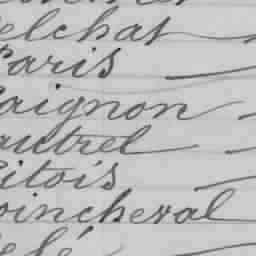 elchat
Paris
aignon
autrel
itois
oincheval
elé